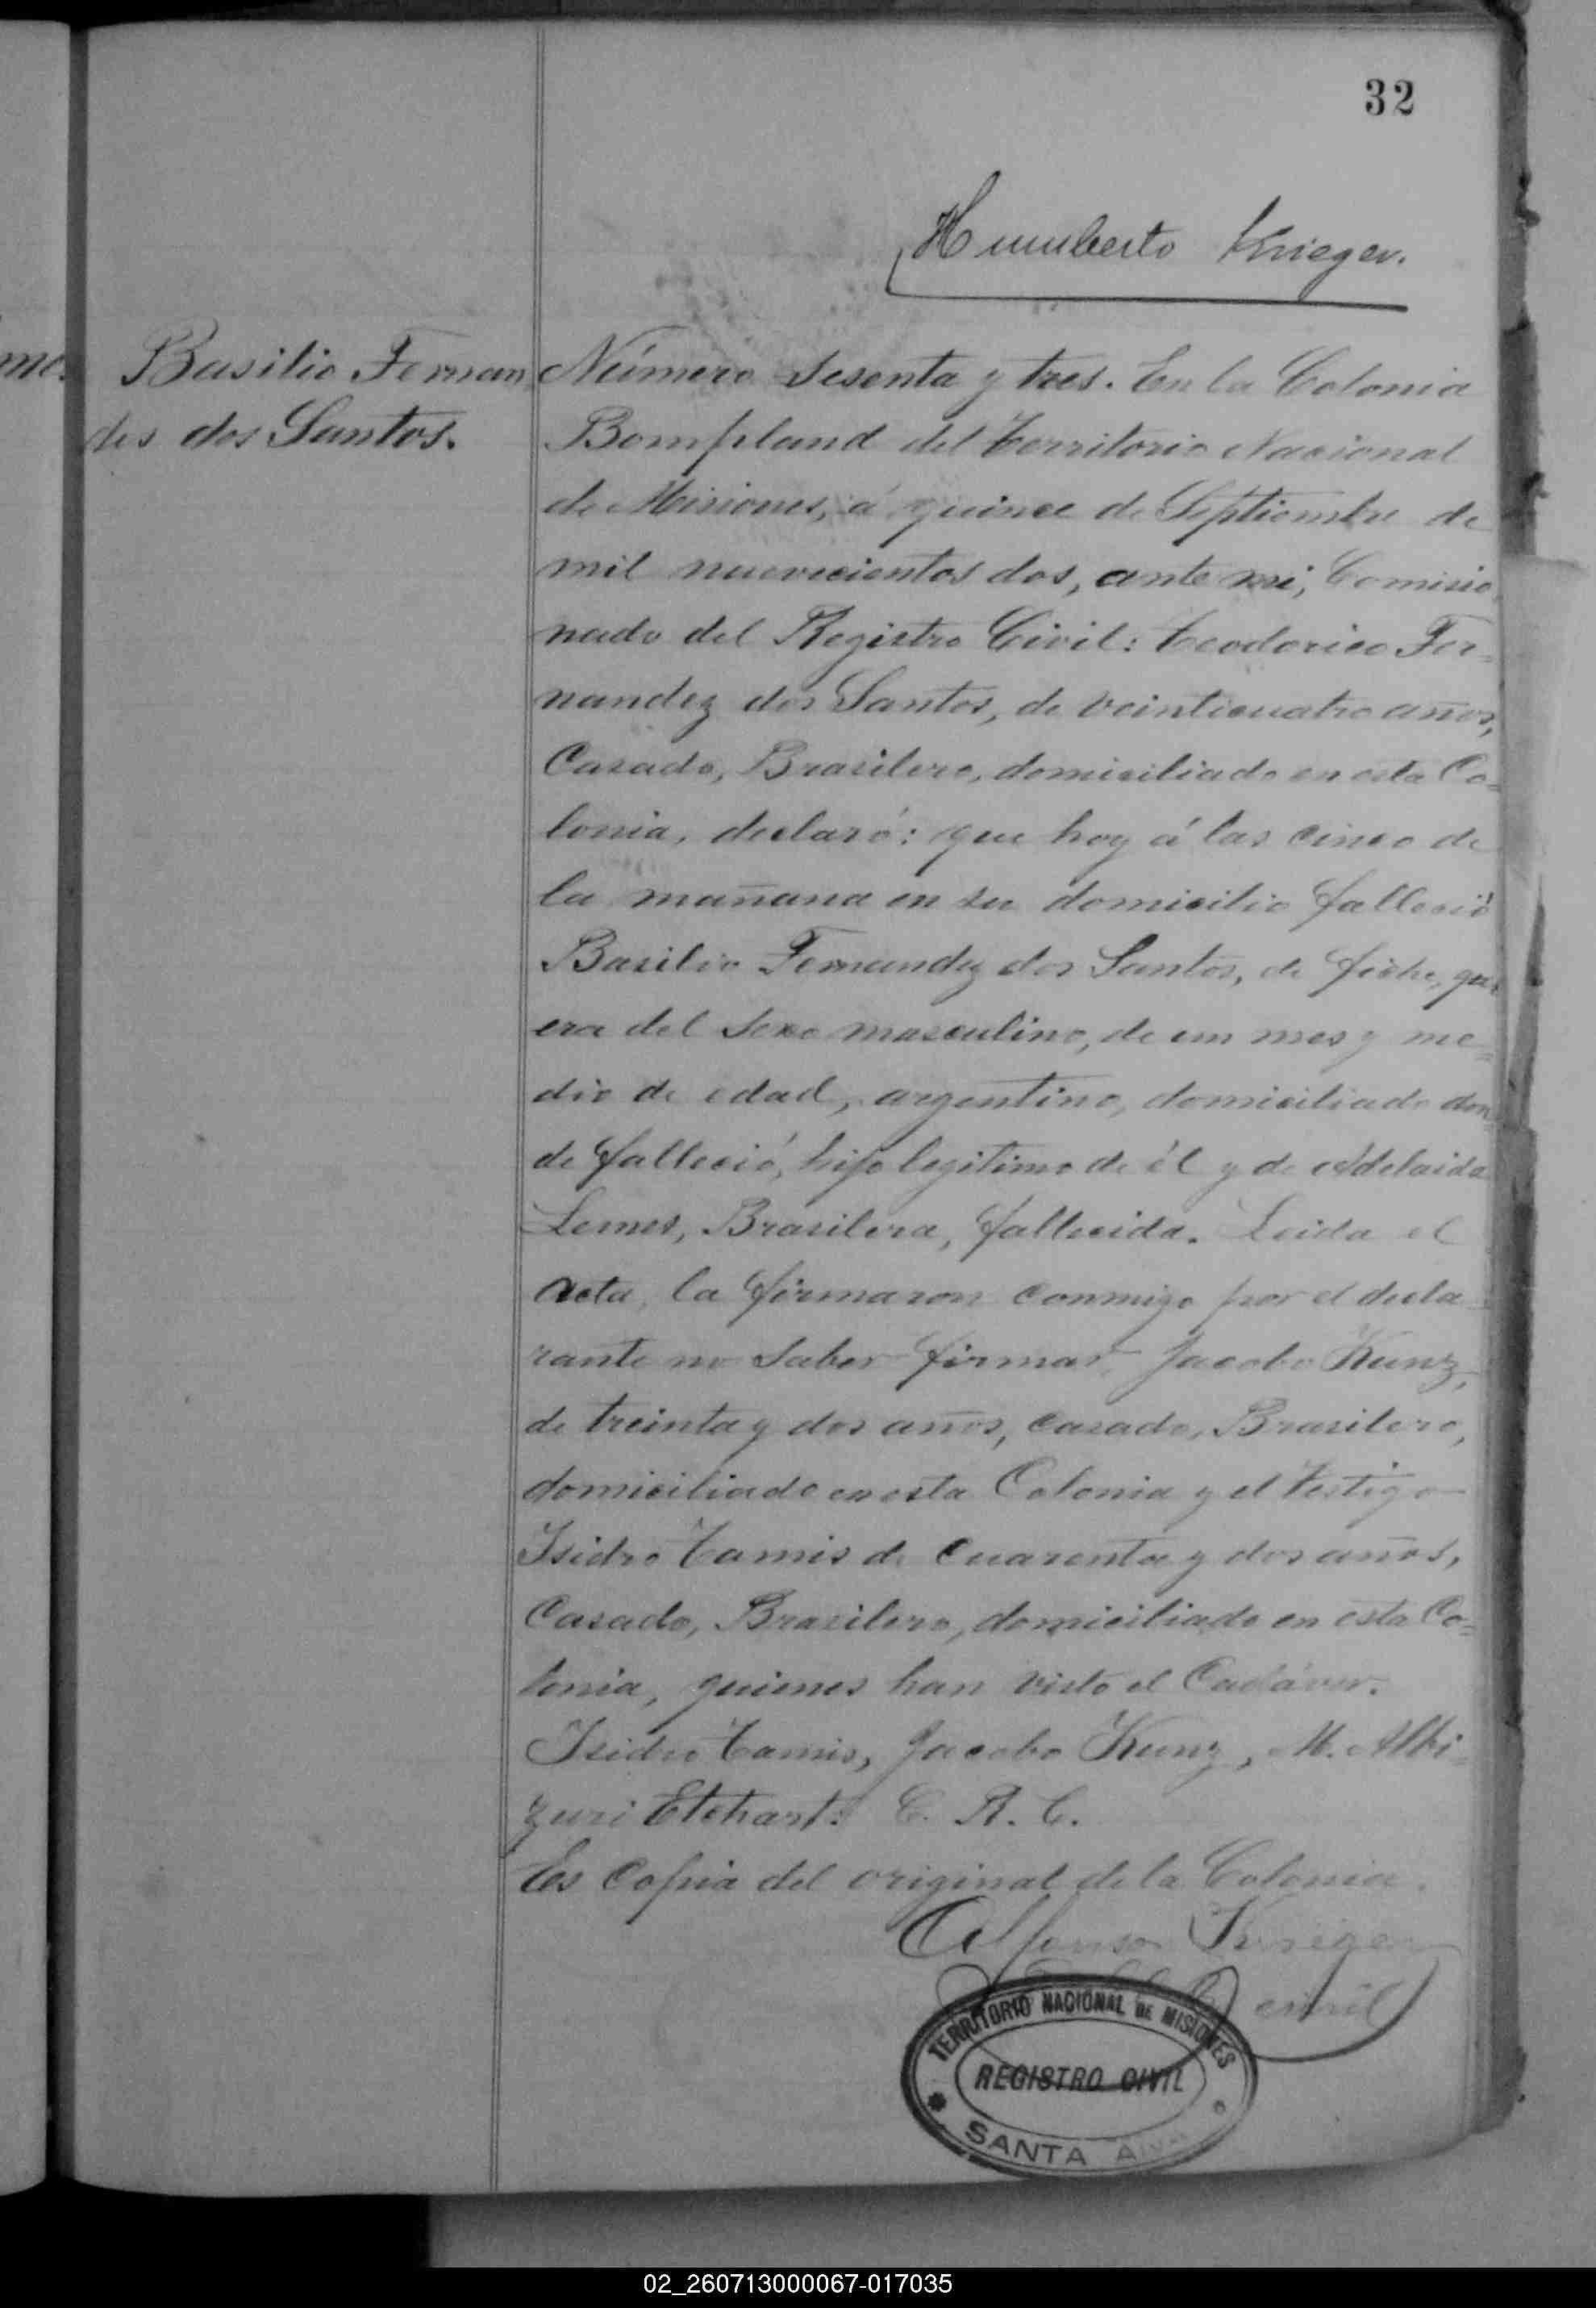 32
Humberto Krieger.
Basilio Fernan
des dos Santos.
Número Sesenta y tres. En la Colonia
Bompland del Territorio Nacional
de Misiones, á quince de Septiembre de
mil nuevecientos dos, ante mi, Comisio
nado del Registro Civil: Teodorico Fer=
nandez dos Santos, de veinticuatro años,
Casado, Brasilero, domiciliado en esta Co=
lonia, declaró: que hoy á las cinco de
la mañana en su domicilio falleció
Basilio Fernandez dos Santos, de fiebre, que
era del Sexo masculino, de un mes y me=
dio de edad, argentino, domiciliado don
de falleció, hijo legitimo de él y de Adelaida
Lemes, Brasilera, fallecida. Leida el
acta, la firmaron conmigo por el decla
rante no saber firmar, Jacobo Kunz,
de treinta y dos años, casado, Brasilero,
domiciliado en esta Colonia y el testigo
Isidro Tamis de Cuarenta y dos años,
Casado, Brasilero, domiciliado en esta Co=
lonia, quienes han visto el Cadáver.
Isidro Tamis, Jacobo Kunz, M. Albi=
zuri Etchart: C. R. C.
Es Copia del original de la Colonia.
Alfonso Krieger
TERRITORIO NACIONAL DE MISIONES
REGISTRO CIVIL
SANTA ANA
02_260713000067-017035